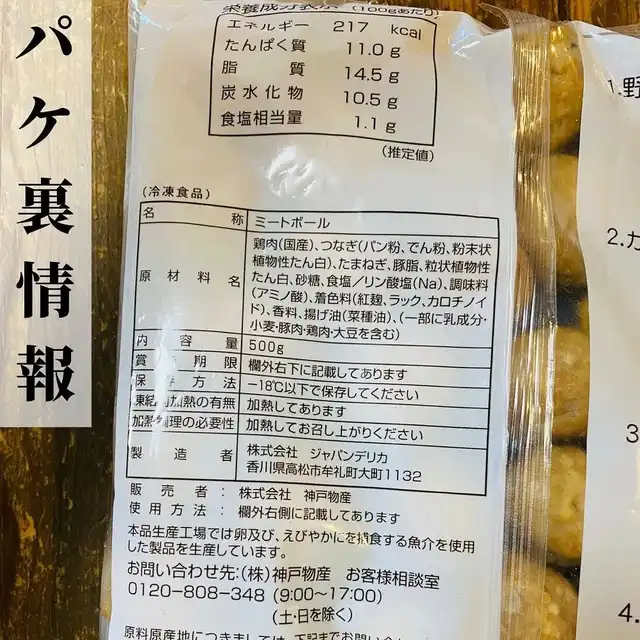 パケ裏情報
栄養成分表示（100gあたり）
エネルギー 217 kcal
たんぱく質 11.0 g
脂質 14.5 g
炭水化物 10.5 g
食塩相当量 1.1 g
（推定値）
（冷凍食品）
名称 ミートボール
原材料名 鶏肉（国産）、つなぎ（パン粉、でん粉、粉末状
植物性たん白）、たまねぎ、豚脂、粒状植物性
たん白、砂糖、食塩／リン酸塩（Na）、調味料
（アミノ酸）、着色料（紅麹、ラック、カロチノイ
ド）、香料、揚げ油（菜種油）、（一部に乳成分・
小麦・豚肉・鶏肉・大豆を含む）
内容量 500g
賞味期限 欄外右下に記載してあります
保存方法 −18℃以下で保存してください
凍結前加熱の有無 加熱してあります
加熱調理の必要性 加熱してお召し上がりください
製造者 株式会社 ジャパンデリカ
香川県高松市牟礼町大町1132
販売者：株式会社 神戸物産
使用方法：欄外右側に記載してあります
本品生産工場では卵及び、えびやかにを捕食する魚介を使用
した製品を生産しています。
お問い合わせ先：（株）神戸物産 お客様相談室
0120-808-348（9:00〜17:00）
（土・日を除く）
原料原産地につきましては、下記までお問い合わせ
1.野
2.カ
3
4.